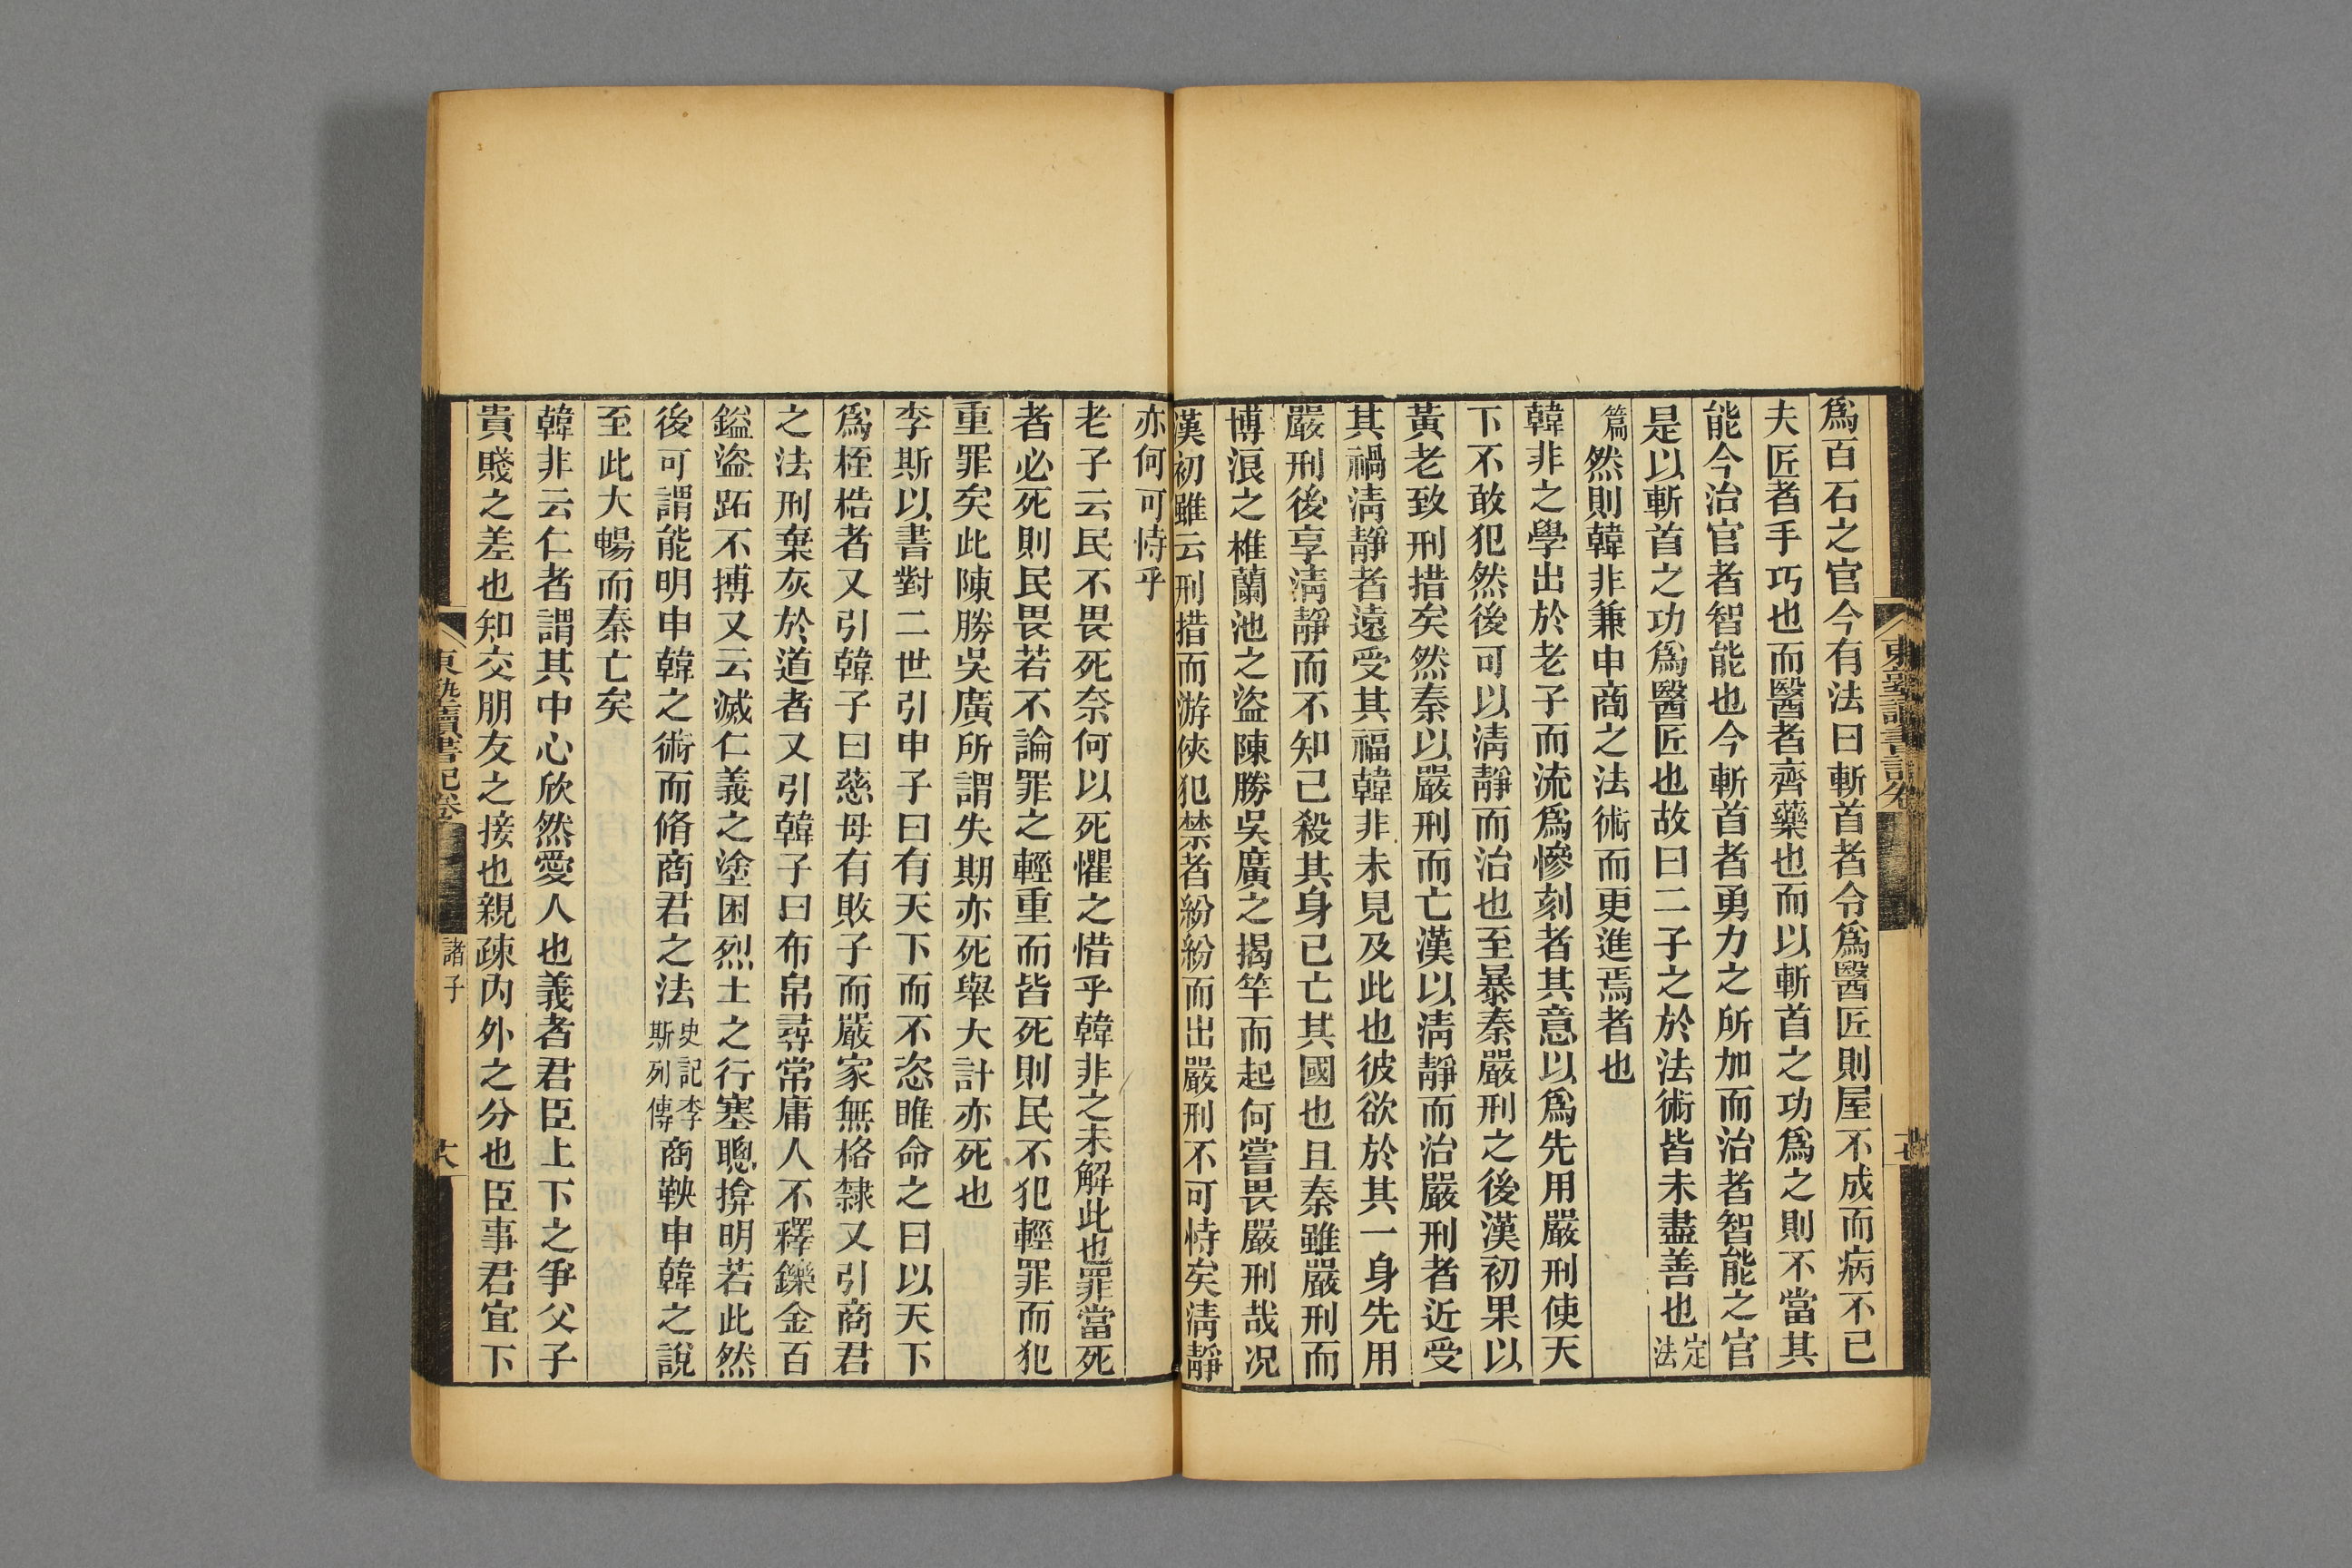 爲百石之官今有法曰斬首者令爲醫匠則屋不成而病不已
夫匠者手巧也而醫者齊藥也而以斬首之功爲之則不當其
能今治官者智能也今斬首者勇力之所加而治者智能之官
是以斬首之功爲醫匠也故曰二子之於法術皆未盡善也定法
篇然則韓非兼申商之法術而更進焉者也
韓非之學出於老子而流爲慘刻者其意以爲先用嚴刑使天
下不敢犯然後可以淸靜而治也至暴秦嚴刑之後漢初果以
黃老致刑措矣然秦以嚴刑而亡漢以淸靜而治嚴刑者近受
其禍淸靜者遠受其福韓非未見及此也彼欲於其一身先用
嚴刑後享淸靜而不知已殺其身已亡其國也且秦雖嚴刑而
博浪之椎蘭池之盜陳勝吳廣之揭竿而起何嘗畏嚴刑哉况
漢初雖云刑措而游俠犯禁者紛紛而出嚴刑不可恃矣淸靜
亦何可恃乎
老子云民不畏死奈何以死懼之惜乎韓非之未解此也罪當死
者必死則民畏若不論罪之輕重而皆死則民不犯輕罪而犯
重罪矣此陳勝吳廣所謂失期亦死舉大計亦死也
李斯以書對二世引申子曰有天下而不恣睢命之曰以天下
爲桎梏者又引韓子曰慈母有敗子而嚴家無格隸又引商君
之法刑棄灰於道者又引韓子曰布帛尋常庸人不釋鑠金百
鎰盜跖不搏又云滅仁義之塗困烈士之行塞聰揜明若此然
後可謂能明申韓之術而脩商君之法史記李斯列傳商鞅申韓之說
至此大暢而秦亡矣
韓非云仁者謂其中心欣然愛人也義者君臣上下之爭父子
貴賤之差也知交朋友之接也親疎內外之分也臣事君宜下
東塾讀書記卷
諸子